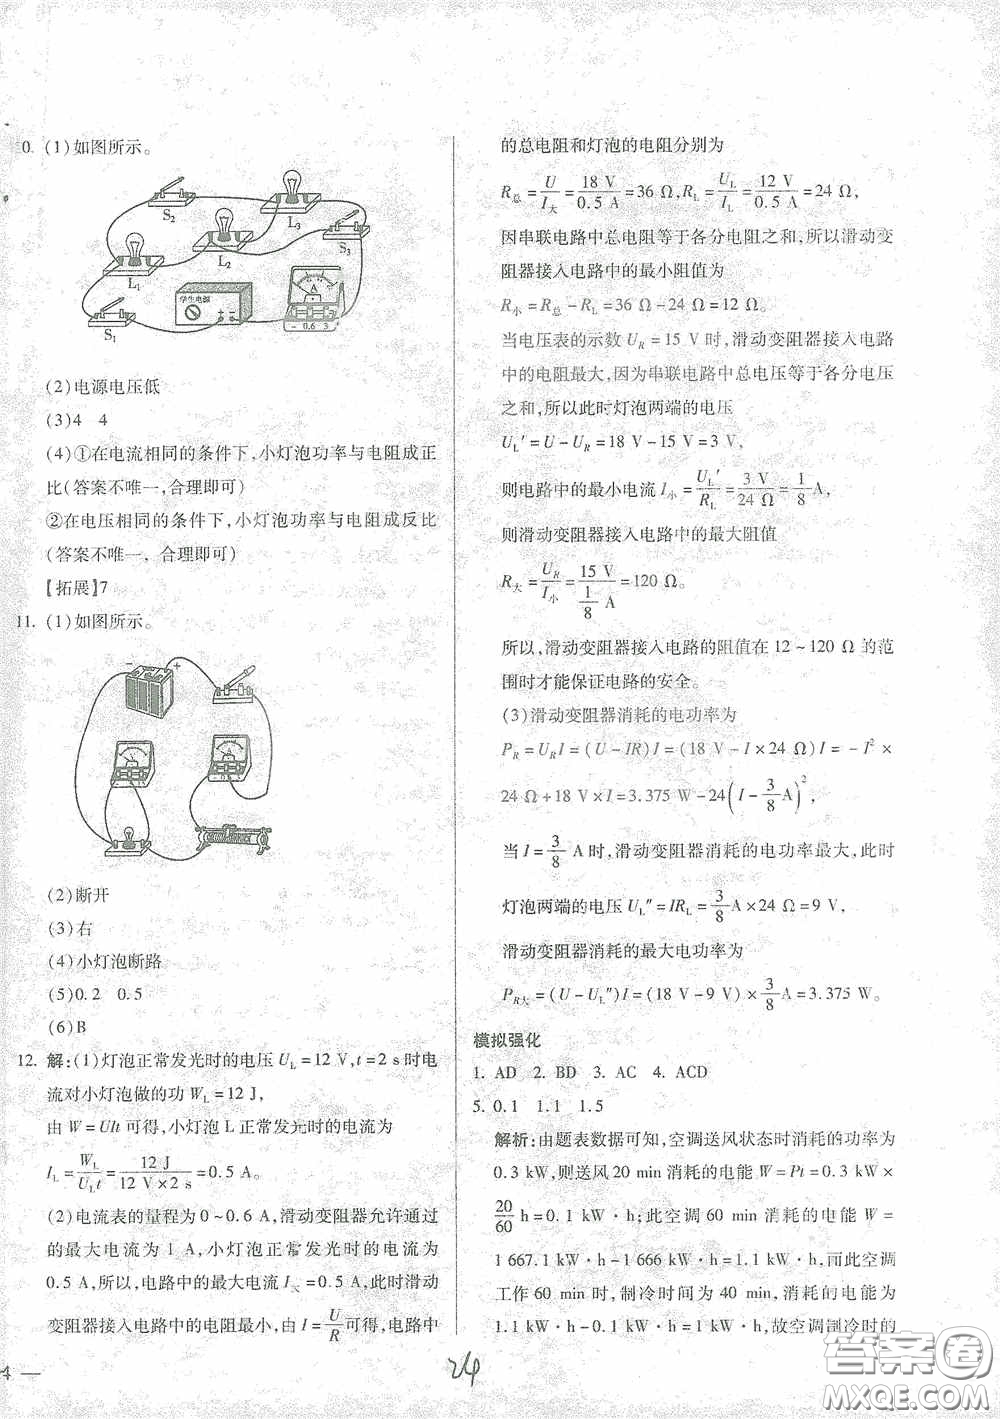 0. (1)如图所示。
S₂ L₃ L₂ S₃ L₁ 学生电源 A S₁ - 0.6 3
(2)电源电压低
(3)4 4
(4)①在电流相同的条件下,小灯泡功率与电阻成正
比(答案不唯一,合理即可)
②在电压相同的条件下,小灯泡功率与电阻成反比
(答案不唯一,合理即可)
【拓展】7
11. (1)如图所示。
- +
(2)断开
(3)右
(4)小灯泡断路
(5)0.2 0.5
(6)B
12. 解:(1)灯泡正常发光时的电压 U_L=12 V,t=2 s 时电
流对小灯泡做的功 W_L=12 J,
由 W=UIt 可得,小灯泡 L 正常发光时的电流为
I_L=W_L/(U_L t)=12 J/(12 V×2 s)=0.5 A。
(2)电流表的量程为 0~0.6 A,滑动变阻器允许通过
的最大电流为 1 A,小灯泡正常发光时的电流为
0.5 A,所以,电路中的最大电流 I_大=0.5 A,此时滑动
变阻器接入电路中的电阻最小,由 I=U/R 可得,电路中
的总电阻和灯泡的电阻分别为
R_总=U/I_大=18 V/0.5 A=36 Ω,R_L=U_L/I_L=12 V/0.5 A=24 Ω,
因串联电路中总电阻等于各分电阻之和,所以滑动变
阻器接入电路中的最小阻值为
R_小=R_总-R_L=36 Ω-24 Ω=12 Ω。
当电压表的示数 U_R=15 V 时,滑动变阻器接入电路
中的电阻最大,因为串联电路中总电压等于各分电压
之和,所以此时灯泡两端的电压
U_L′=U-U_R=18 V-15 V=3 V,
则电路中的最小电流 I_小=U_L′/R_L=3 V/24 Ω=1/8 A,
则滑动变阻器接入电路中的最大阻值
R_大=U_R/I_小=15 V/(1/8 A)=120 Ω。
所以,滑动变阻器接入电路的阻值在 12~120 Ω 的范
围时才能保证电路的安全。
(3)滑动变阻器消耗的电功率为
P_R=U_R I=(U-IR)I=(18 V-I×24 Ω)I=-I²×
24 Ω+18 V×I=3.375 W-24(I-3/8 A)²,
当 I=3/8 A 时,滑动变阻器消耗的电功率最大,此时
灯泡两端的电压 U_L″=IR_L=3/8 A×24 Ω=9 V,
滑动变阻器消耗的最大电功率为
P_R大=(U-U_L″)I=(18 V-9 V)×3/8 A=3.375 W。
模拟强化
1. AD 2. BD 3. AC 4. ACD
5. 0.1 1.1 1.5
解析:由题表数据可知,空调送风状态时消耗的功率为
0.3 kW,则送风 20 min 消耗的电能 W=Pt=0.3 kW×
20/60 h=0.1 kW·h;此空调 60 min 消耗的电能 W=
1 667.1 kW·h-1 666 kW·h=1.1 kW·h,而此空调
工作 60 min 时,制冷时间为 40 min,消耗的电能为
1.1 kW·h-0.1 kW·h=1 kW·h,故空调制冷时的
4 —
24
答案圈
MXQE.COM